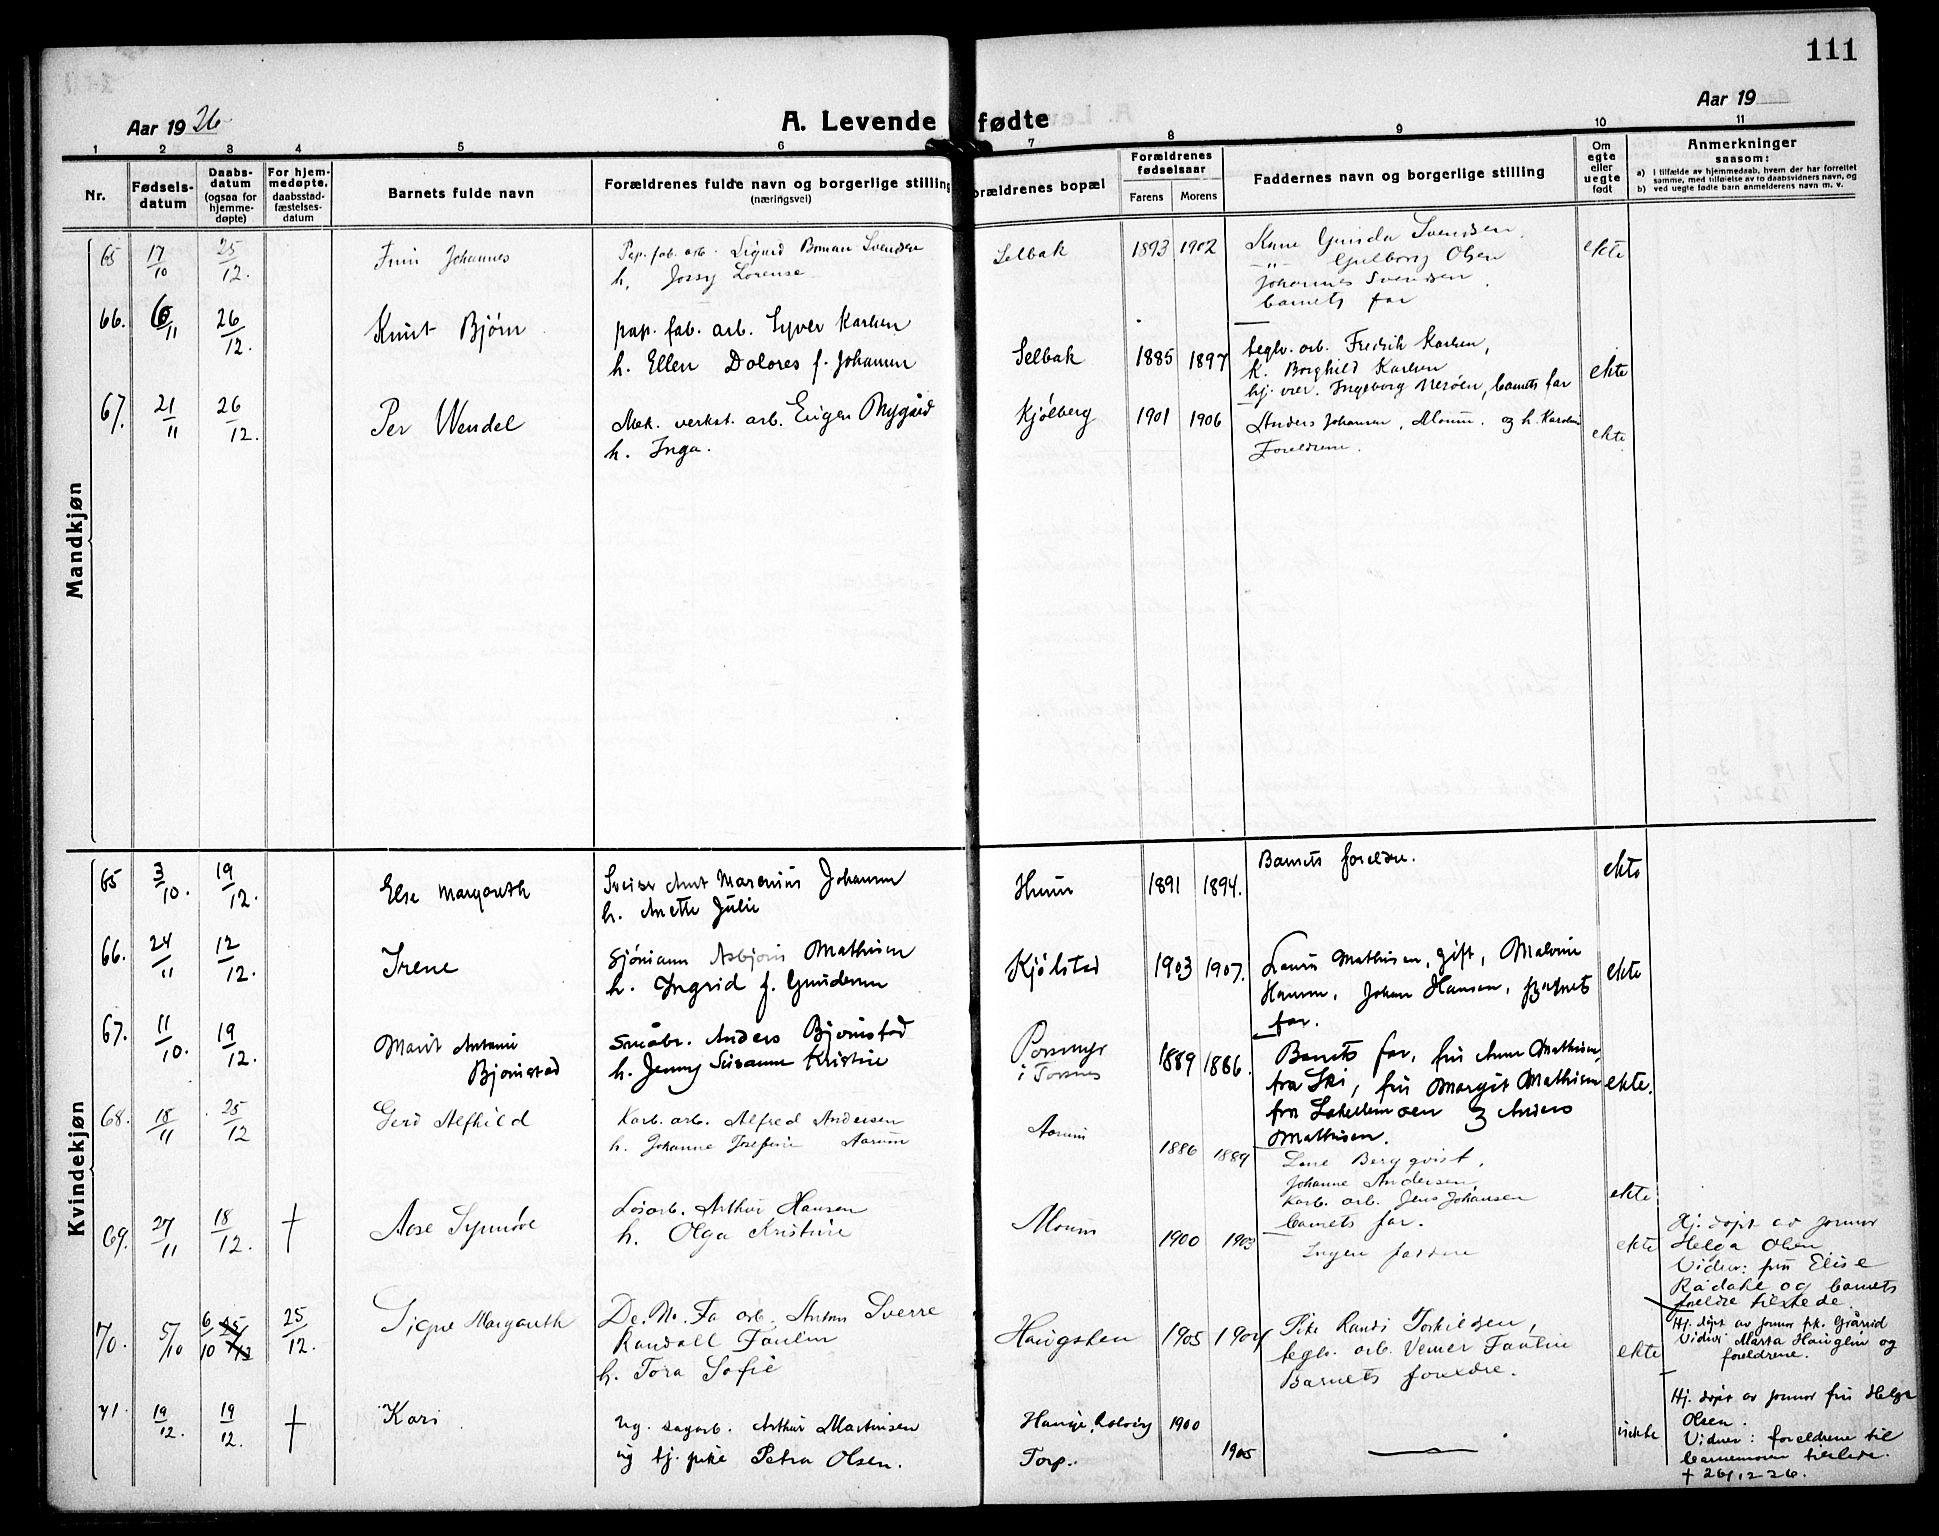 111
Aar 1926
A. Levende fødte
Aar 19
1 2 3 4 5 6 7 8 9 10 11
Nr.
Fødsels-
datum
Daabs-
datum
(ogsaa for
hjemme-
døpte)
For hjem-
medøpte,
daabsstad-
fæstelses-
datum
Barnets fulde navn
Forældrenes fulde navn og borgerlige stilling
(næringsvei)
orældrenes bopæl
Forældrenes
fødselsaar
Farens Morens
Faddernes navn og borgerlige stilling
Om
egte
eller
uegte
født
Anmerkninger
saasom:
a) i tilfælde av hjemmedaab, hvem der har forrettet
samme, med tilføielse av to daabsvidners navn, og
b) ved uegte fødte barn anmelderens navn m. v.
Mandkjøn
65 17/10 25/12. Johannes
Pap. fab. arb. Sigurd Svendsen
h. Jossy Lorense
Selbak 1893 1902
Kone Gunda Svendsen.
-"- Olsen
Johannes Svendsen.
barnets far
ekte
66. 6/11 26/12. Knut Bjørn
pap. fab. arb. Syver Karlsen
h. Ellen Dolores f. Johansen
Selbak 1885 1897
teglv. arb. Fredrik Karlsen,
k. Borghild Karlsen
hj. vær. Ingeborg barnets far
ekte
67. 21/11 26/12. Per Wendel
Mek. verkst. arb. Eugen Nygård
h. Inga.
Kjølberg 1901 1906
Anders Johansen, Moum. og h. Karoline
Foreldrene.
ekte
Kvindekjøn
65 3/10. 19/12. Else Margareth
Sveiser Marenius Johansen
h. Anette Julie
Hunn 1891 1894.
Barnets foreldre.
ekte
66. 24/11 12/12. Irene
Sjømann Asbjørn Mathisen
h. Ingrid f. Gundersen
Kjølstad 1903 1907.
Mathisen, gift, Malvine
Hansen, Johan Hansen, Barnets
far.
ekte
67. 11/10. 19/12. Marit Antonie
Bjørnstad
Småbr. Anders Bjørnstad
h. Jenny Susanne Kristine
Porsmyr
i Torsnes
1889 1886.
Barnets far, fru Anna Mathisen,
fra Ski, fru Margit Mathisen
fra og Anders
Mathisen.
ekte.
68. 18/11 25/12 Gerd Alfhild
Karb. arb. Alfred Andersen
h. Johanne Josefine Aarum
Aarum
1886 1889
Lene Bergqvist,
Johanne Andersen
Karb. arb. Jens Johansen
barnets far.
ekte
69. 27/11 18/12. † Aase Synnøve
Løsarb. Arthur Hansen
h. Olga Kristine
Moum
1900 1903
Ingen faddere
ekte
Hj. døpt av jormor
Helga Olsen
Vidner: fru Elise
Rådahl og barnets
foreldre tilstede.
70. 5/10 6/10 25/12 25/12. Signe Margareth
De. No. Fa arb. Anton Sverre
Randall Fautin
h. Tora Sofie
Haugsten 1905 1904
Pike Randi Torkildsen,
teglv. arb. Verner Fautin
Barnets foreldre.
ekte
Hj. døpt av jormor frk.
Vidner Marta Hauglin og
foreldrene.
71. 19/12. 19/12. † Kari
ug. sagarb. Arthur Martinsen
ug tj. pike Petra Olsen.
Hauge, Rolvsøy 1900
Torp. 1905
uekte
Hj. døpt av jormor fru Helga
Olsen.
Vidner: foreldrene til
barnemoren tilstede.
† 26/12 26.